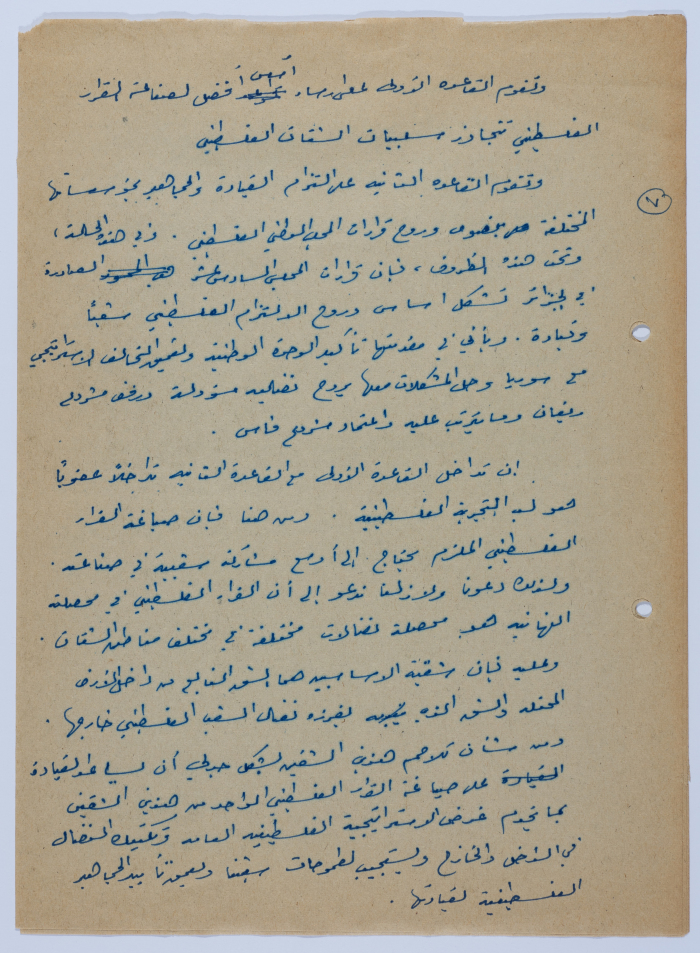 وتقوم القاعدة الأولى على ارساء أسس أفضل لصناعة القرار
الفلسطيني تتجاوز سلبيات الشتات الفلسطيني
وتقوم القاعدة الثانية على التزام القيادة والجماهير بمؤسساتها
٧
المختلفة بنصوص وروح قرارات المجلس الوطني الفلسطيني . وفي هذه الحالة ،
وتحت هذه الظروف ، فإن قرارات المجلس السادس عشر الصادرة
في الجزائر تشكل اساس وروح الالتزام الفلسطيني شعبأ
وقيادة . ويأتي في مقدمتها تأكيد الوحدة الوطنية وتعميق التحالف الاستراتيجي
مع سوريا وحل المشكلات معها بروح نضالية مسؤولة ورفض مشروع
ريغان وما يترتب عليه واعتماد مشروع فاس .
ان تداخل القاعدة الأولى مع القاعدة الثانية تداخلاً عضوياً
هو لب التجربة الفلسطينية . ومن هنا فإن صياغة القرار
الفلسطيني الملتزم يحتاج إلى أوسع مشاركة شعبية في صناعته .
ولذلك دعونا ولا زلنا ندعو إلى أن القرار الفلسطيني في محصلته
النهائية هو محصلة نضالات مختلفة في مختلف مناطق الشتات .
وعليه فإن شقيه الاساسيين هما الشق النابع من داخل الأرض
المحتلة والشق الذي يفرزه نضال الشعب الفلسطيني خارجها .
ومن شأن تلاحم هذين الشقين بشكل جدلي أن يساعد القيادة
على صياغة القرار الفلسطيني الواحد من هذين الشقين
بما يخدم غرض الاستراتيجية الفلسطينية العامة وتكتيك النضال
في الداخل والخارج ويستجيب لطموحات شعبنا ويعمق تأييد الجماهير
الفلسطينية لقيادتها .